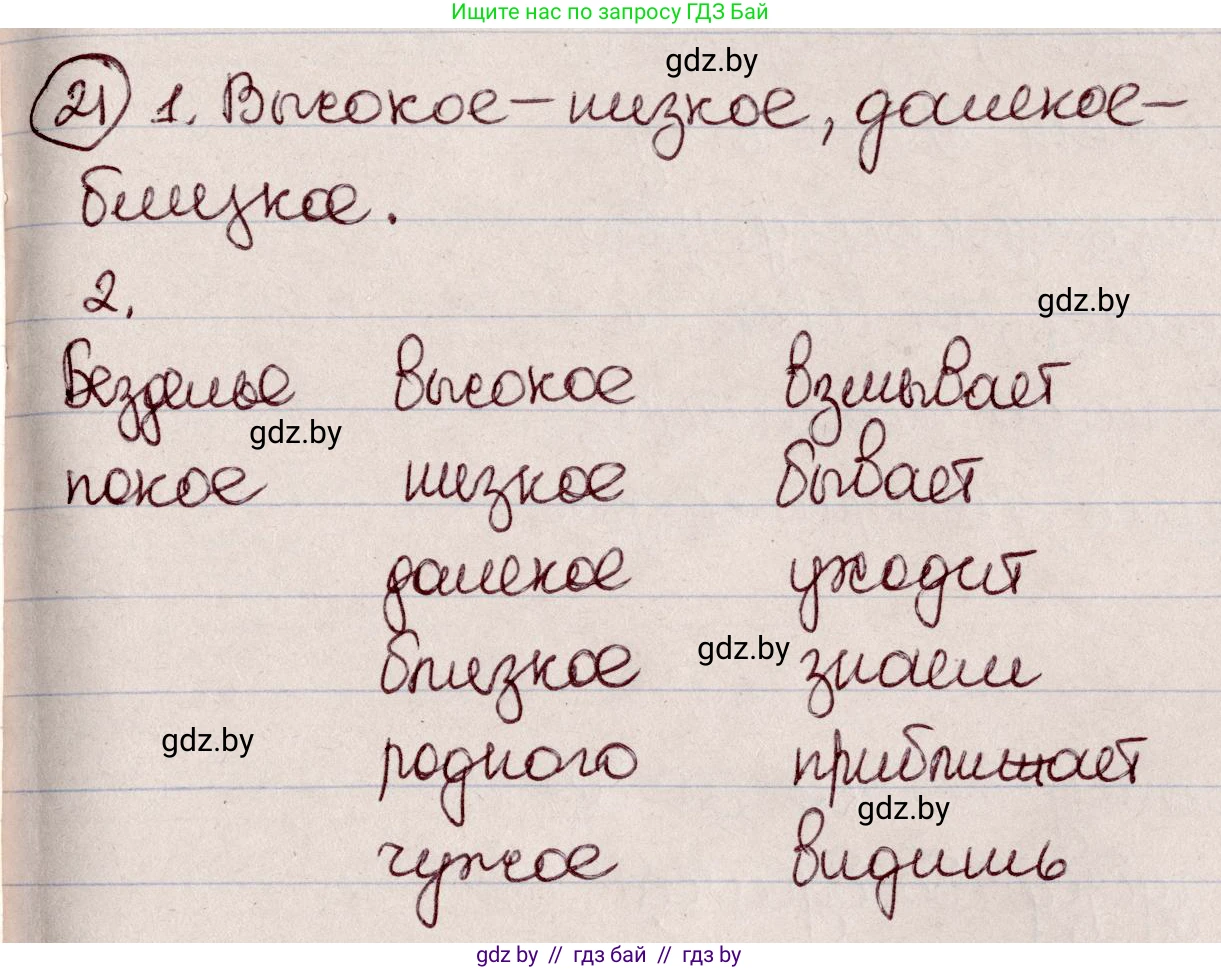 Ищите нас по запросу ГДЗ Бай
gdz.by
21 1. Высокое – низкое, далекое –
близкое.
2.
gdz.by
Безделье высокое взмывает
gdz.by
покое низкое бывает
далекое уходит
близкое gdz.by знаем
gdz.by
родного приближает
gdz.by
чужое видишь
gdz.by // гдз бай // гдз by